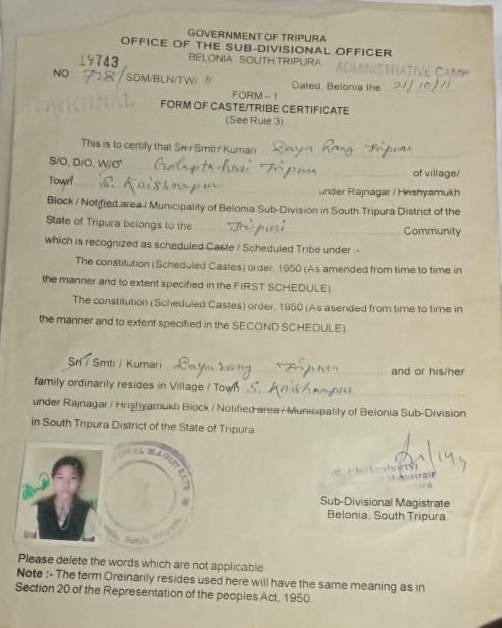 GOVERNMENT OF TRIPURA
OFFICE OF THE SUB-DIVISIONAL OFFICER
BELONIA SOUTH TRIPURA
ADMINISTRATIVE CAMP
19743
NO 728/SDM/BLN/TW/ 11
Dated, Belonia the 21/10/11
ORIGINAL
FORM - 1
FORM OF CASTE/TRIBE CERTIFICATE
(See Rule 3)
This is to certify that Sri / Smti / Kumari Tripura
S/O, D/O, W/O Tripura of village/
Town S. Kaishnapur under Rajnagar / Hrishyamukh
Block / Notified area / Municipality of Belonia Sub-Division in South Tripura District of the
State of Tripura belongs to the Tripuri Community
which is recognized as scheduled Caste / Scheduled Tribe under :-
The constitution (Scheduled Castes) order, 1950 (As amended from time to time in
the manner and to extent specified in the FIRST SCHEDULE)
The constitution (Scheduled Castes) order, 1950 (As asended from time to time in
the manner and to extent specified in the SECOND SCHEDULE)
Sri / Smti / Kumari Tripura and or his/her
family ordinarily resides in Village / Town S. Kaishnapur
under Rajnagar / Hrishyamukh Block / Notified area / Municipality of Belonia Sub-Division
in South Tripura District of the State of Tripura
Sub-Divisional Magistrate
Belonia, South Tripura.
Please delete the words which are not applicable
Note :- The term Oreinarily resides used here will have the same meaning as in
Section 20 of the Representation of the peoples Act, 1950.